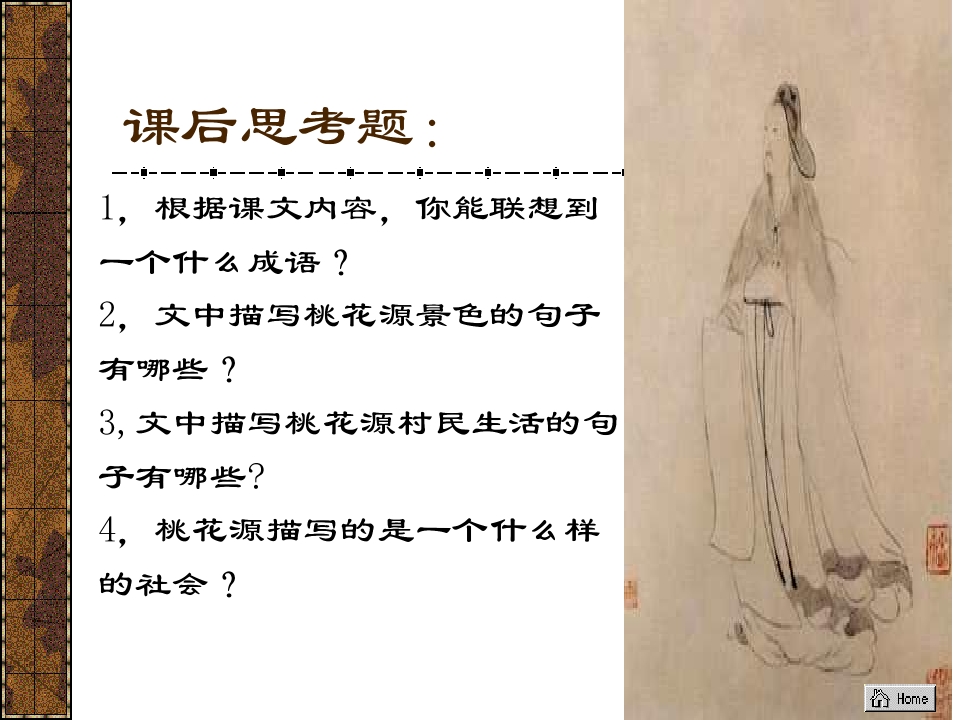 课后思考题：
1，根据课文内容，你能联想到
一个什么成语？
2，文中描写桃花源景色的句子
有哪些？
3,文中描写桃花源村民生活的句
子有哪些?
4，桃花源描写的是一个什么样
的社会？
Home